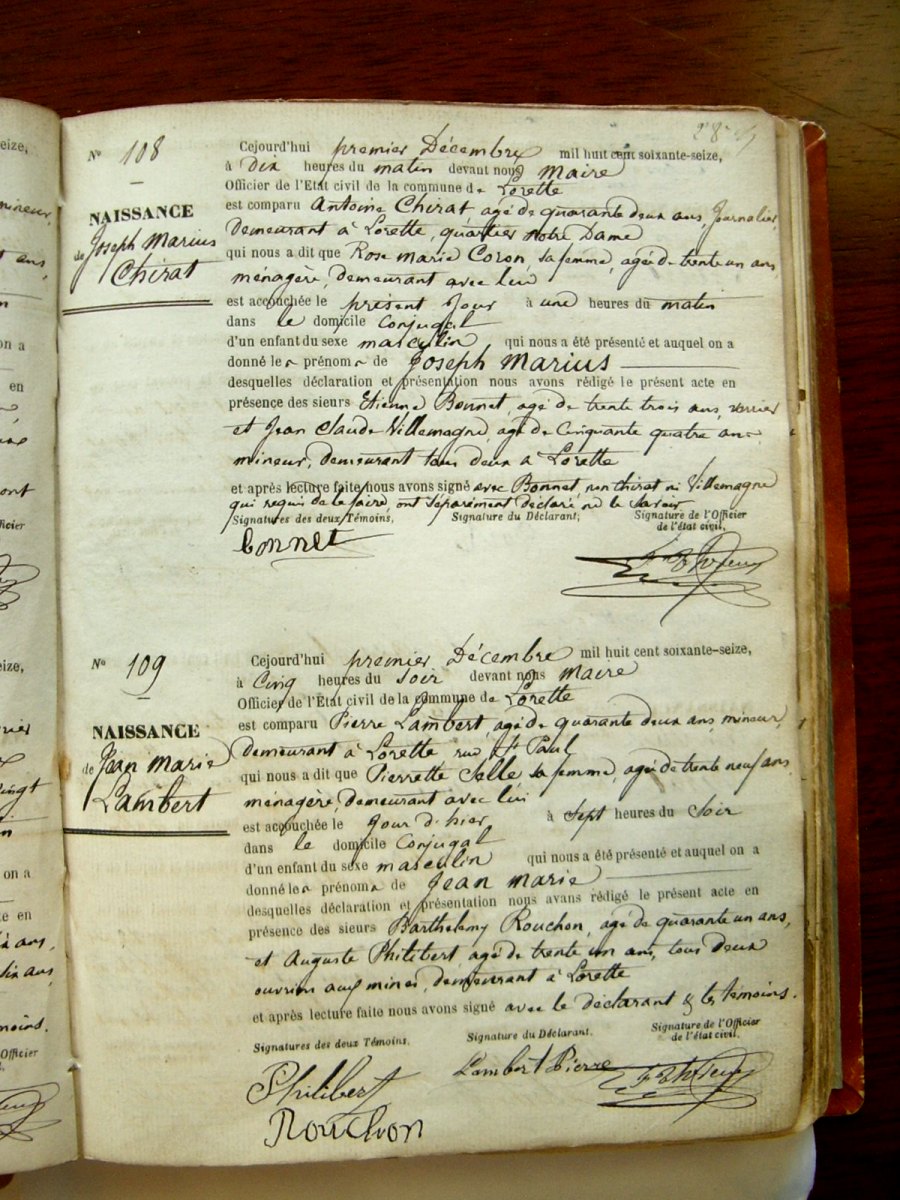 N° 108
NAISSANCE
de Joseph Marius
Chirat
Cejourd'hui premier Décembre mil huit cent soixante-seize,
à dix heures du matin devant nous Maire
Officier de l'Etat civil de la commune de Lorette
est comparu Antoine Chirat, agé de quarante deux ans, Journalier,
demeurant à Lorette, quartier Notre Dame
qui nous a dit que Rose Marie Coron, sa femme, agée de trente un ans
ménagère, demeurant avec lui
est accouchée le présent Jour à une heures du matin
dans le domicile Conjugal
d'un enfant du sexe masculin, qui nous a été présenté et auquel on a
donné les prénoms de Joseph Marius
desquelles déclaration et présentation nous avons rédigé le présent acte en
présence des sieurs Etienne Bonnet, agé de trente trois ans, verrier
et Jean Claude Villemagne, agé de Cinquante quatre ans
mineur, demeurant tous deux à Lorette
et après lecture faite nous avons signé avec Bonnet, non Chirat ni Villemagne
qui requis de le faire, ont séparément déclaré ne le savoir
Signatures des deux Témoins, Signature du Déclarant, Signature de l'Officier
de l'état civil,
bonnet
N° 109
NAISSANCE
de Jean Marie
Lambert
Cejourd'hui premier Décembre mil huit cent soixante-seize,
à Cinq heures du soir devant nous Maire
Officier de l'Etat civil de la commune de Lorette
est comparu Pierre Lambert, agé de quarante deux ans, mineur,
demeurant à Lorette rue St Paul
qui nous a dit que Pierrette Salle sa femme, agée de trente neuf ans
ménagère, demeurant avec lui
est accouchée le jour d'hier, à Sept heures du Soir
dans le domicile Conjugal
d'un enfant du sexe masculin qui nous a été présenté et auquel on a
donné les prénoms de Jean Marie
desquelles déclaration et présentation nous avons rédigé le présent acte en
présence des sieurs Barthélemy Rouchon, agé de quarante un ans,
et Auguste Philibert agé de trente un ans, tous deux
ouvriers aux mines, demeurant à Lorette
et après lecture faite nous avons signé avec le déclarant & les témoins.
Signatures des deux Témoins. Signature du Déclarant. Signature de l'Officier
de l'état civil.
Philibert
Lambert Pierre
Rouchon